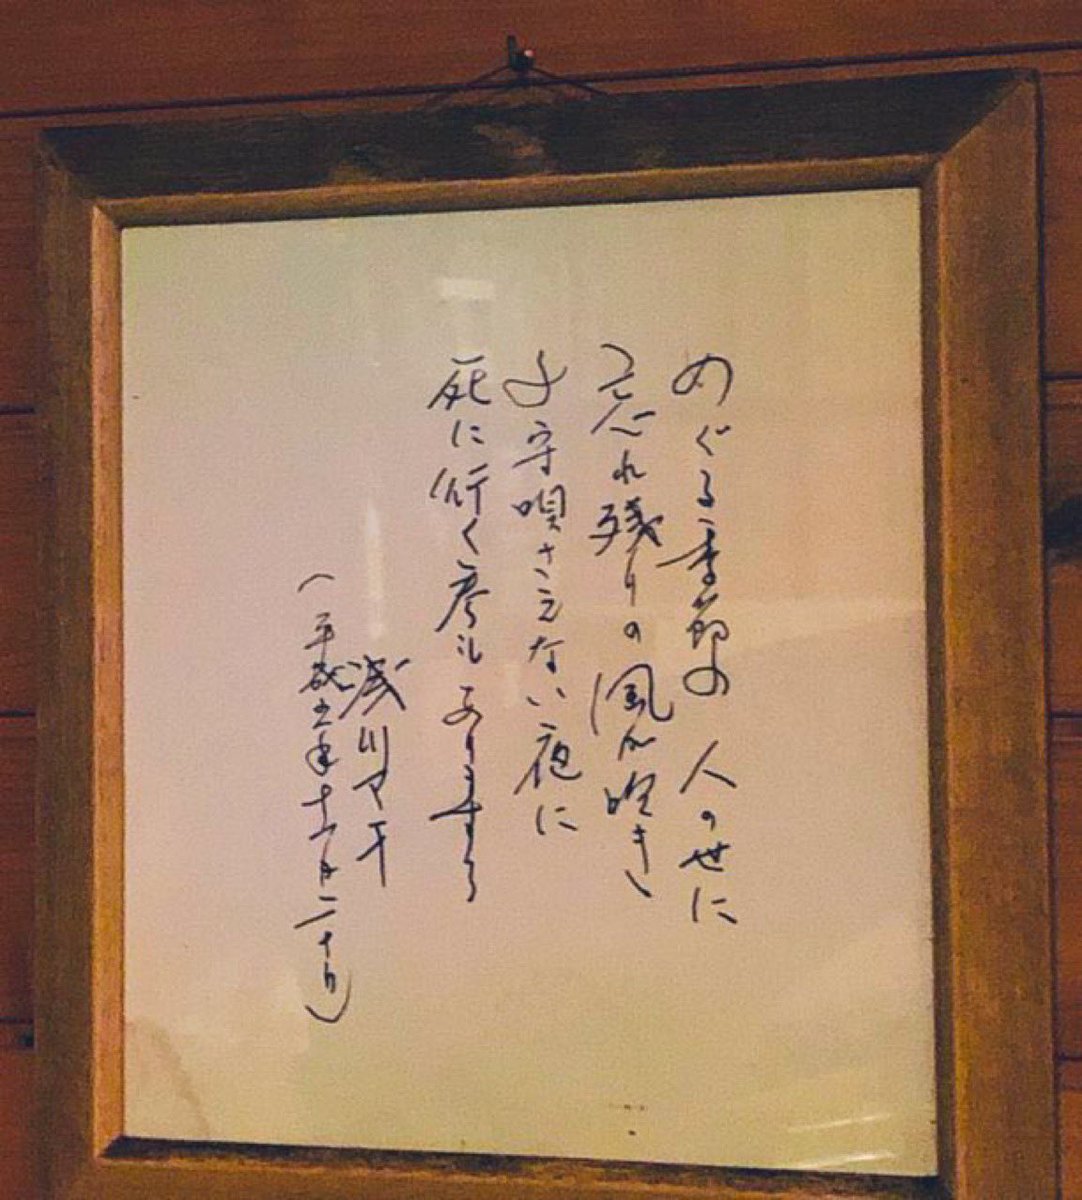 めぐる季節の 人の世に
忘れ残りの風が吹き
子守唄さえない夜に
死に行く者もありまする
浅川マキ
(平成五年十二月二十日)